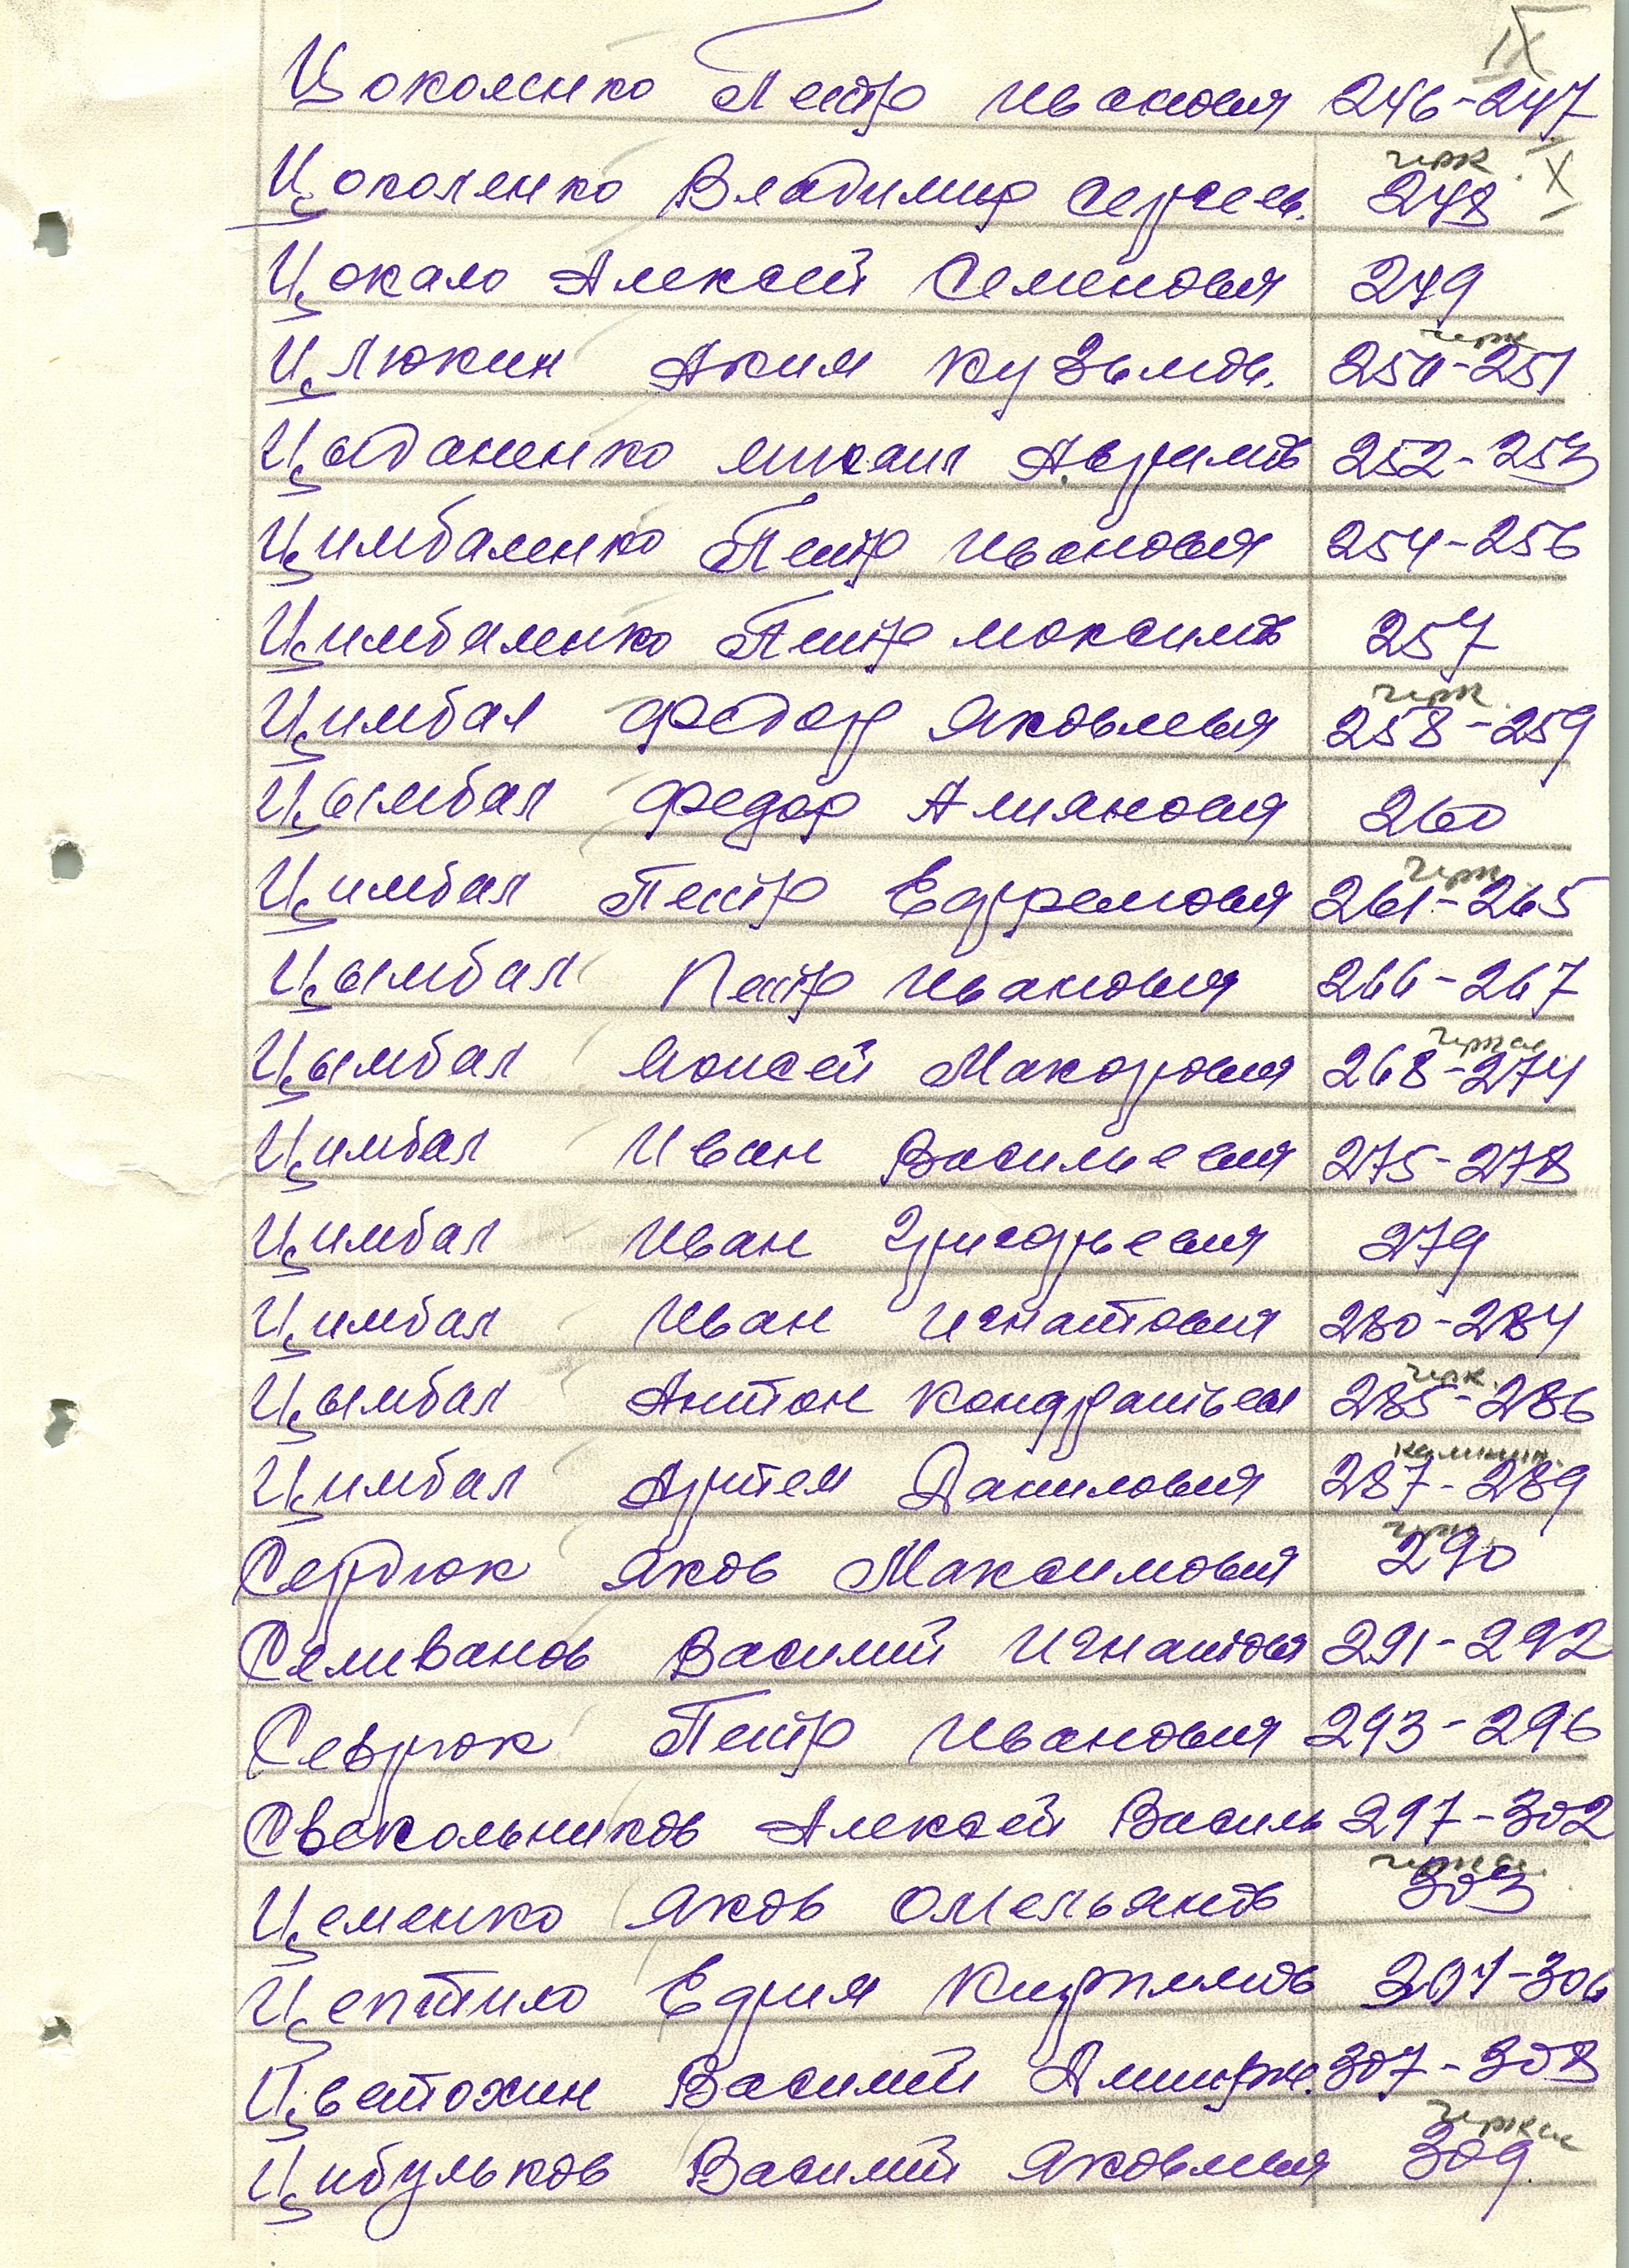 IX
Цоколенко Петр Иванович 246-247
черк. X
Цоколенко Владимир Сергеев. 248
Цокало Алексей Семенович 249
черк
Цлюкин Аким Кузьмов. 250-251
Цыбаненко Михаил 252-253
Цимбаленко Петр Иванович 254-256
Цимбаленко Петр Максимов 257
черк.
Цимбал Федор Яковлевич 258-259
Цымбал Федор 260
черк.
Цимбал Петр Ефремович 261-265
Цымбал Петр Иванович 266-267
черкас.
Цымбал Моисей Макорович 268-274
Цимбал Иван Васильевич 275-278
Цимбал Иван Григорьевич 279
Цимбал Иван Игнатович 280-284
черк.
Цымбал Антон Кондратьев 285-286
калинин.
Цимбал Артем Данилович 287-289
черк.
Сердюк Яков Максимович 290
Селиванов Василий Игнатов 291-292
Севрюк Петр Иванович 293-296
Свекольников Алексей Василь 297-302
черкас.
Цеменко Яков Омельянов 303
Цептило Кирилов 304-306
Цветохин Василий 307-308
черкас
Цибульков Василий Яковлевич 309